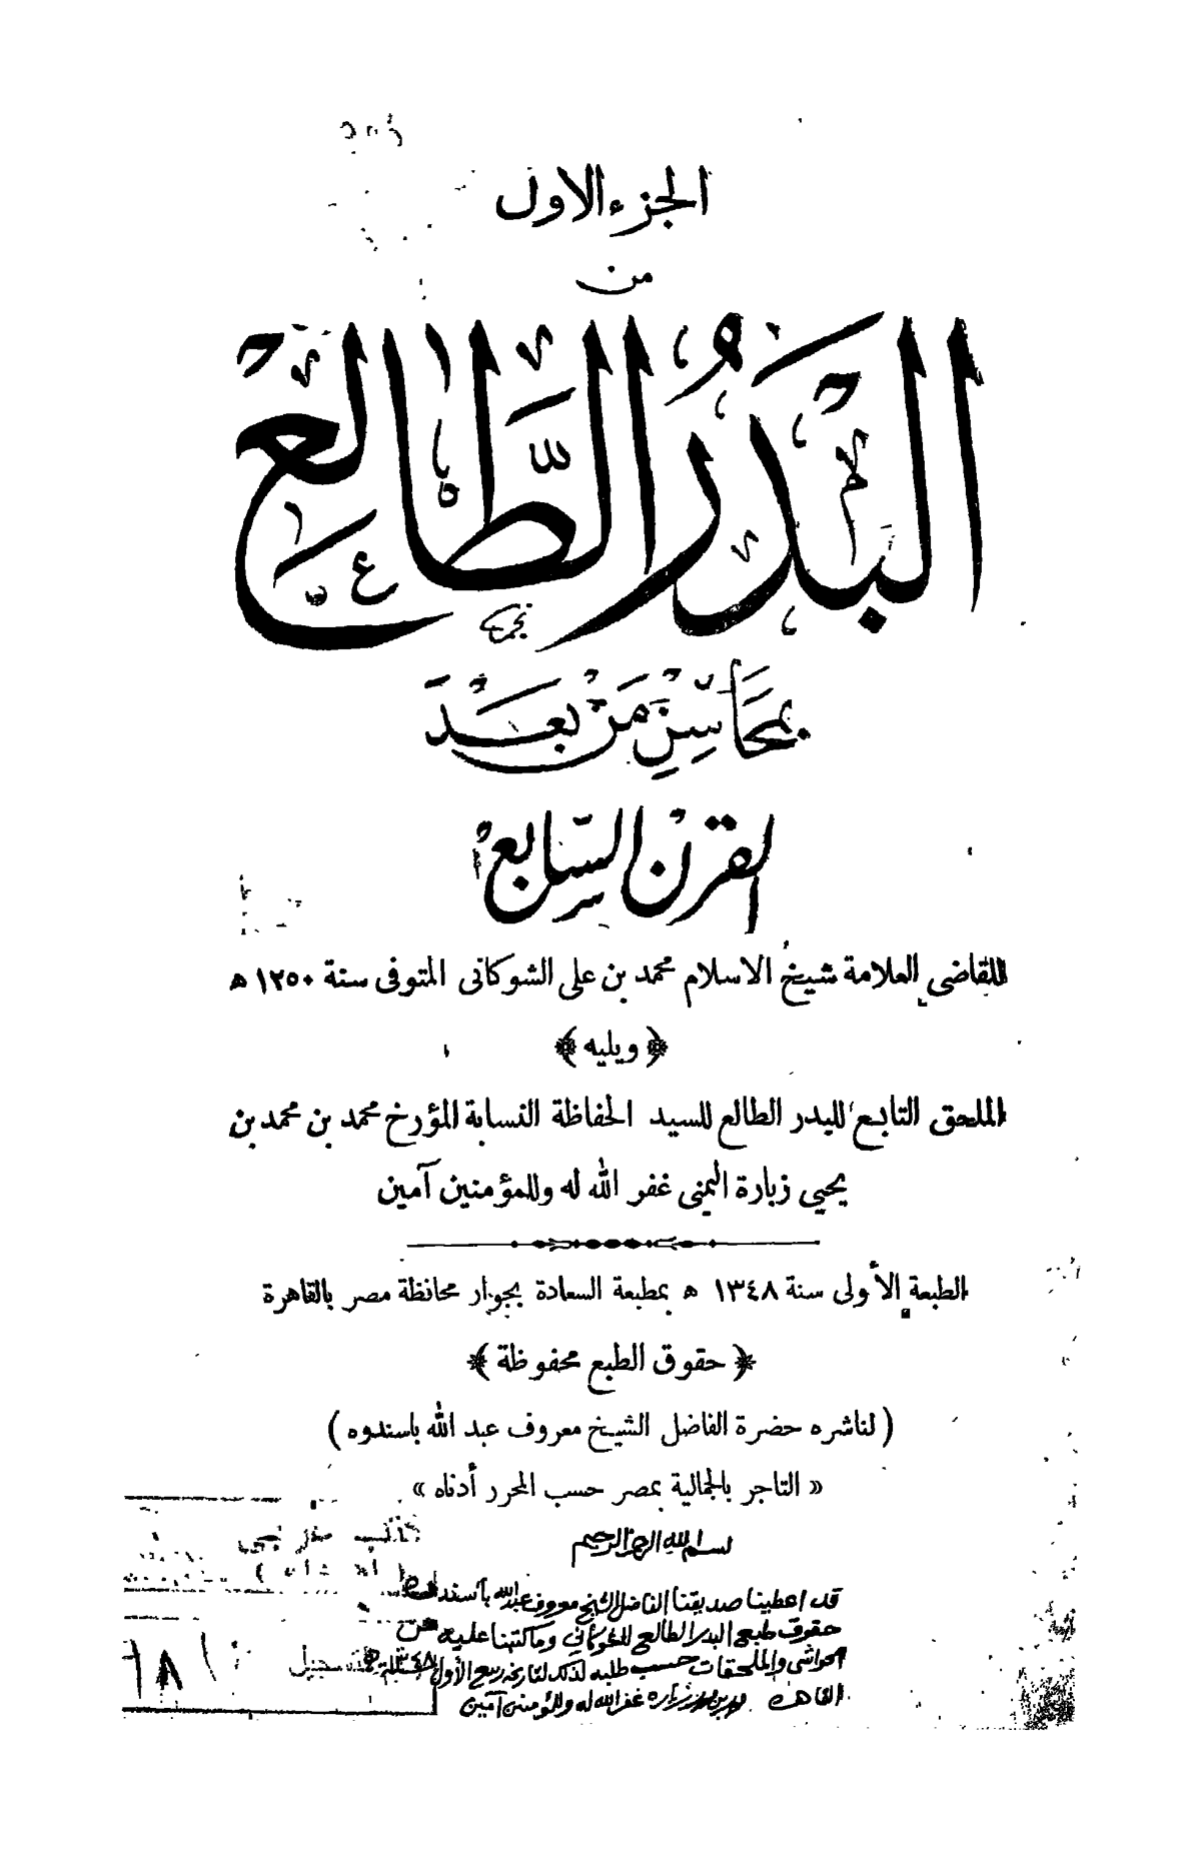 الجزء الاول
من
البَدْرُ الطَّالِعْ
بِمَحَاسِنِ مَنْ بَعْدَ
القرن السّابع
للقاضي العلامة شيخ الاسلام محمد بن علي الشوكانى المتوفى سنة ١٢٥٠ ه
﴿ ويليه ﴾
الملحق التابع للبدر الطالع للسيد الحفاظة النسابة المؤرخ محمد بن محمد بن
يحيى زبارة اليمنى غفر الله له وللمؤمنين آمين
الطبعة الأولى سنة ١٣٤٨ ه بمطبعة السعادة بجوار محافظة مصر بالقاهرة
﴿ حقوق الطبع محفوظة ﴾
( لناشره حضرة الفاضل الشيخ معروف عبد الله باسندوه )
« التاجر بالجمالية بمصر حسب المحرر أدناه »
بسم الله الرحمن الرحيم
قد اعطينا صديقنا الفاضل الشيخ معروف عبدالله باسندوه
حقوق طبع البدر الطالع للشوكاني وما كتبنا عليه من
الحواشي والملحقات حسب طلبه لذلك لتاريخه ربيع الأول سنة ١٣٤٨
القاهرة محمد بن محمد زبارة غفر الله له وللمؤمنين آمين
تسجيل